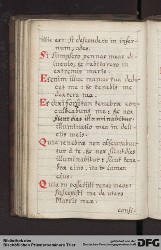 illic es: si descendero in infer-
num, ades.
Si sumpsero pennas meas di-
luculo, et habitavero in
extremis maris.
Etenim illuc manus tua dedu-
cet me: et tenebit me
dextera tua.
Et dixi forsitan tenebrae con-
culcabunt me: et nox
illuminatio mea in deli-
ciis meis.
Quia tenebrae non obscurabun-
tur a te, et nox sicut dies
illuminabitur: sicut tene-
brae eius, ita et lumen
eius.
Quia tu possedisti renes meos:
suscepisti me de utero
Matris meae.
confi-
Bibliothek des
Bischöflichen Priesterseminars Trier
DFG